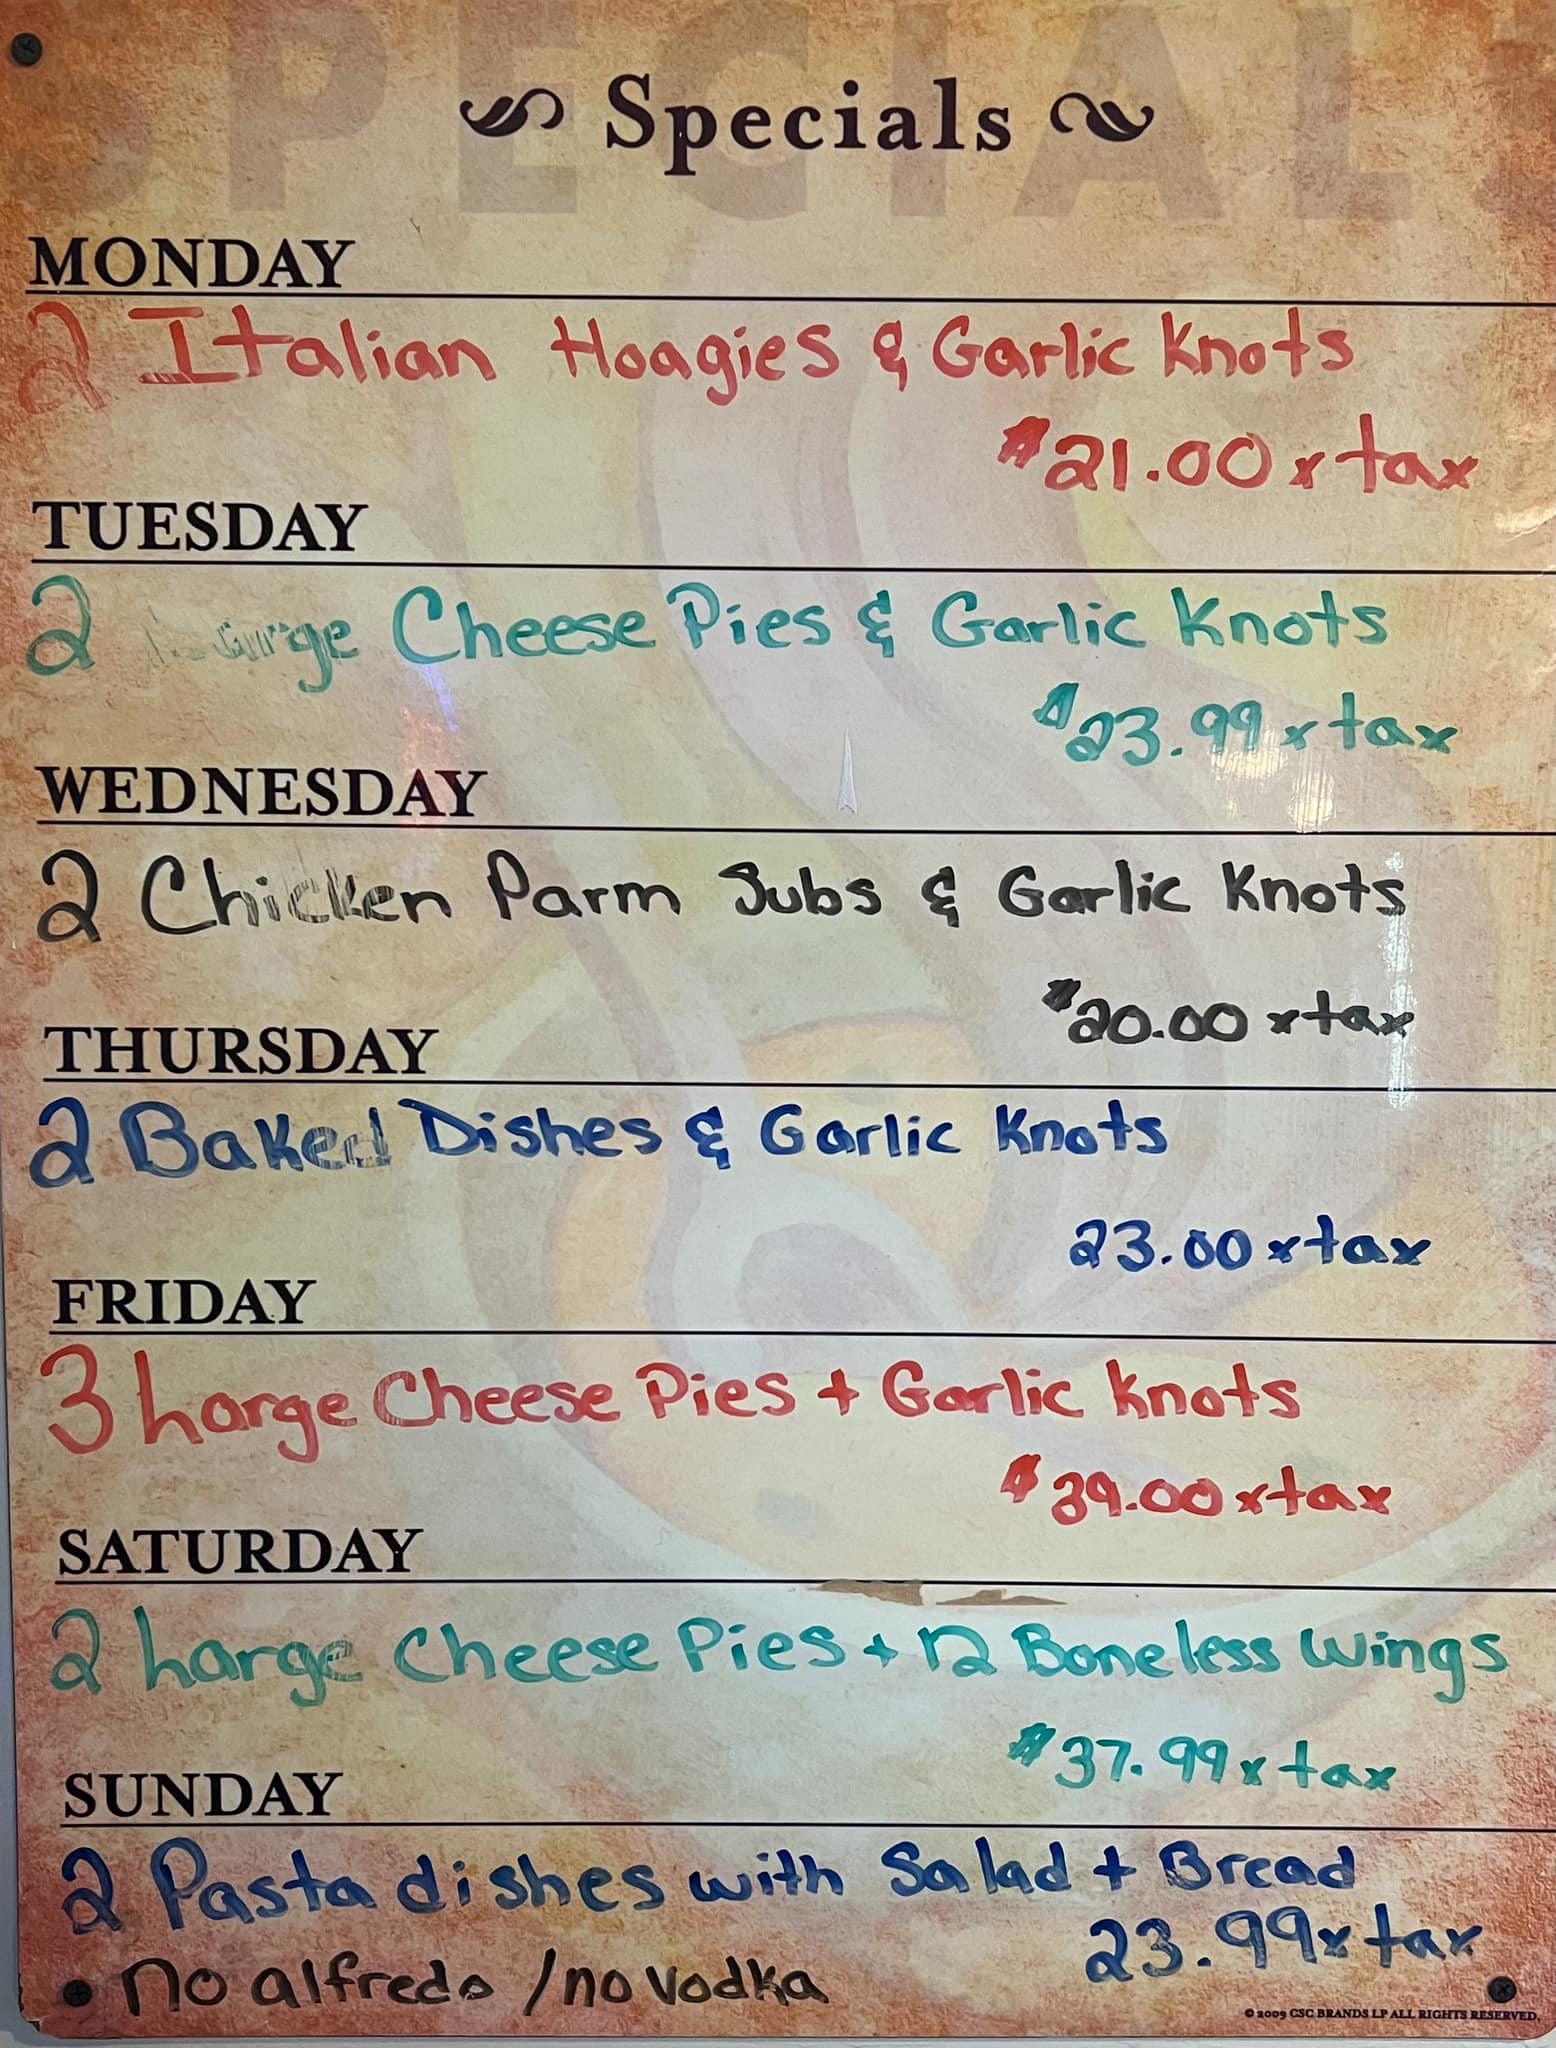 SPECIALS
Specials
MONDAY
2 Italian Hoagies & Garlic Knots
$21.00 x tax
TUESDAY
2 Large Cheese Pies & Garlic Knots
$23.99 x tax
WEDNESDAY
2 Chicken Parm Subs & Garlic Knots
$20.00 x tax
THURSDAY
2 Baked Dishes & Garlic Knots
23.00 x tax
FRIDAY
3 Large Cheese Pies + Garlic Knots
$39.00 x tax
SATURDAY
2 Large Cheese Pies + 12 Boneless Wings
$37.99 x tax
SUNDAY
2 Pasta dishes with Salad + Bread
23.99 x tax
• no alfredo / no vodka
© 2009 CSC BRANDS LP ALL RIGHTS RESERVED.